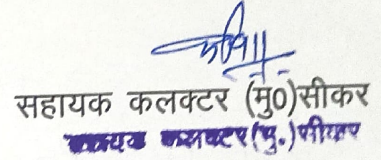 सहायक कलक्टर (मु0)सीकर
कलक्टर(मु.)सीकर